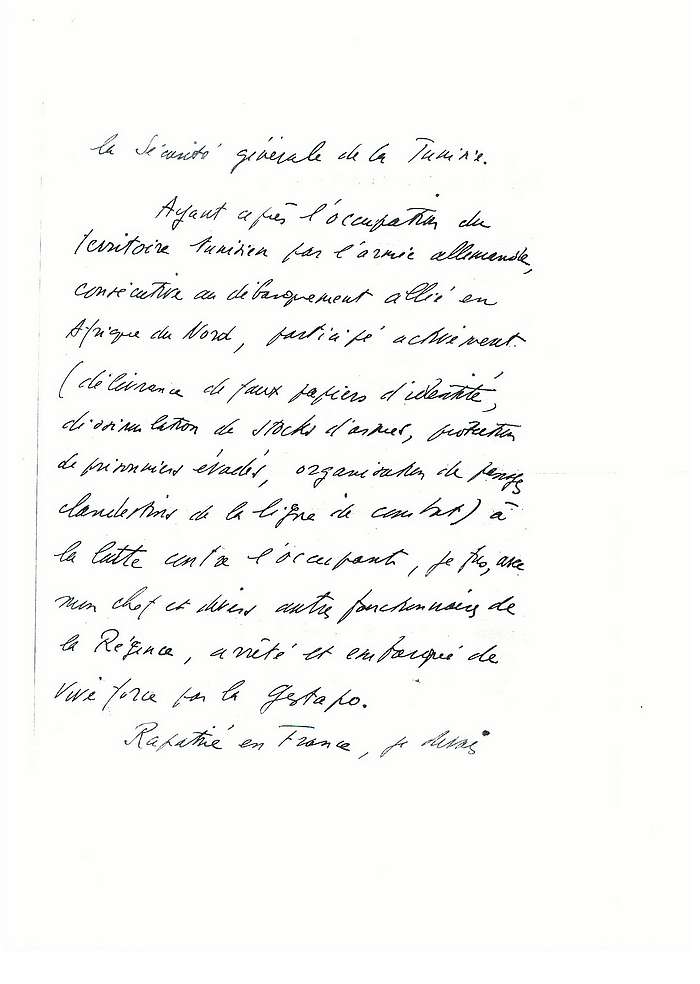 la Sécurité générale de la Tunisie.
Ayant après l'occupation du
territoire tunisien par l'armée allemande,
consécutive au débarquement allié en
Afrique du Nord, participé activement
(délivrance de faux papiers d'identité,
dissimulation de stocks d'armes, protection
de prisonniers évadés, organisation de passages
clandestins de la ligne de combat) à
la lutte contre l'occupant, je fus, avec
mon chef et divers autres fonctionnaires de
la Régence, arrêté et embarqué de
vive force par la Gestapo.
Rapatrié en France, je devais